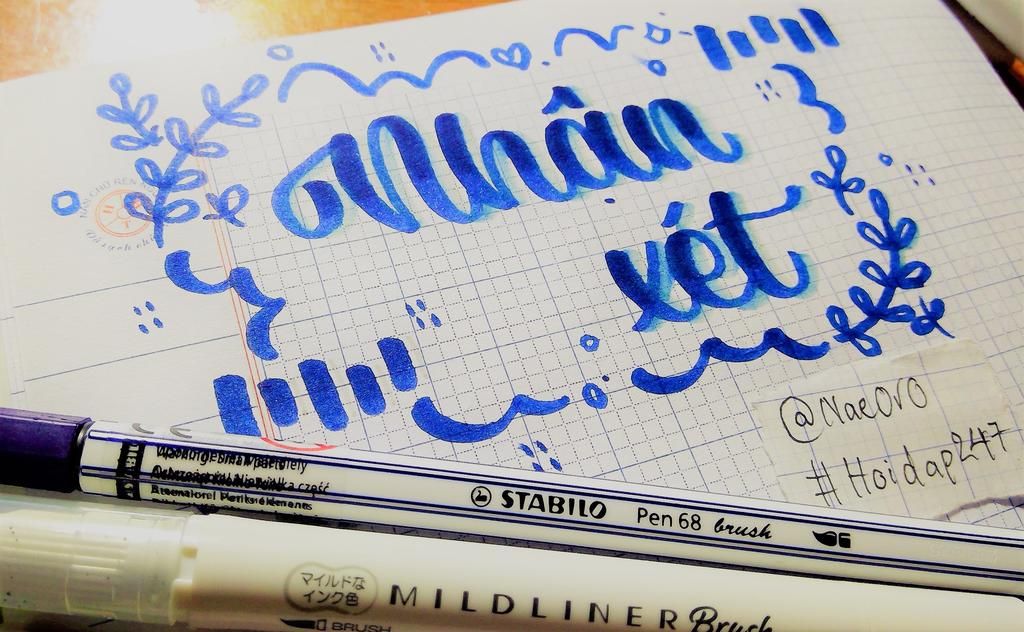 Nhận
xét
@NaeOvO
#Hoidap247
STABILO Pen 68 brush
マイルドな
インク色
MILDLINER Brush
BRUSH